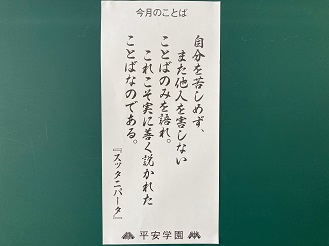 今月のことば
自分を苦しめず、
また他人を害しない
ことばのみを語れ。
これこそ実に善く説かれた
ことばなのである。
『スッタニパータ』
平安学園